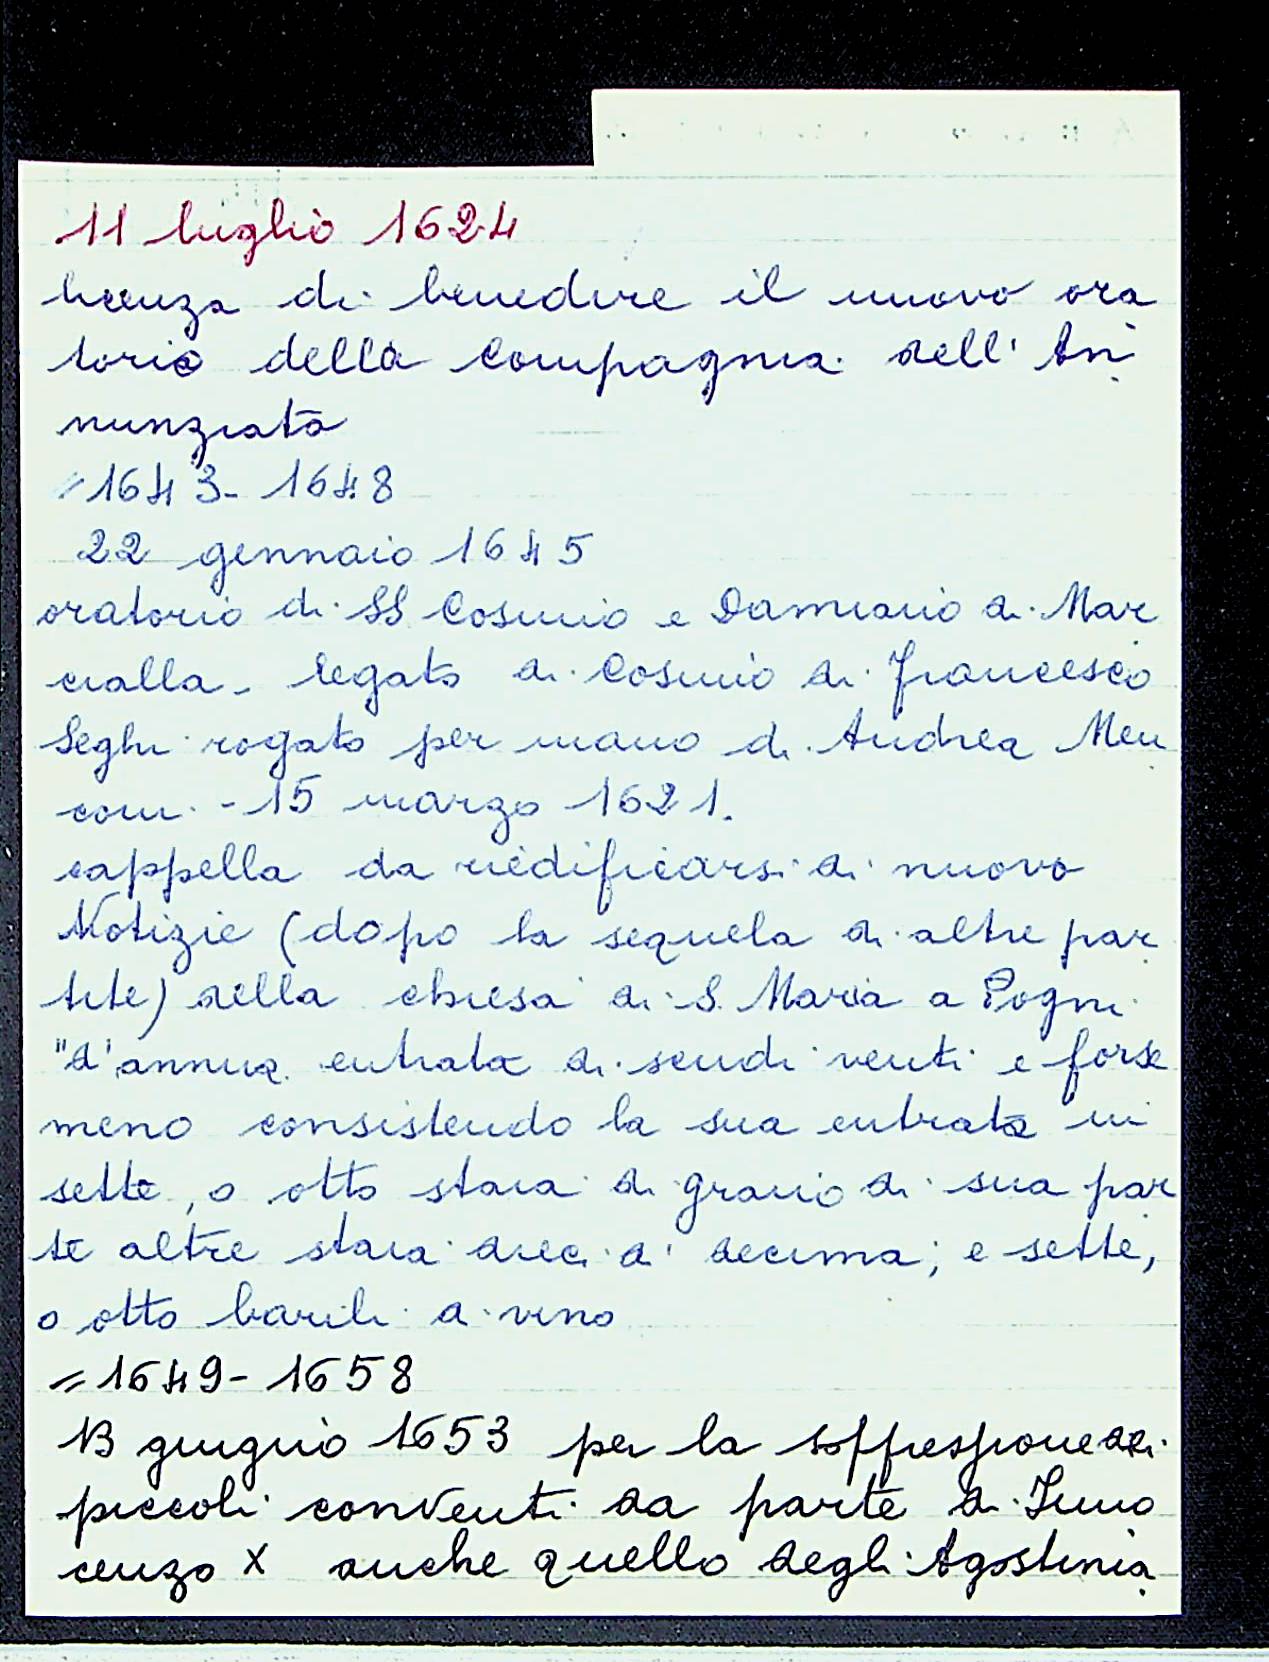 11 luglio 1624
licenza di benedire il nuovo ora
torio della Compagnia dell' An
nunziata
= 1643 - 1648
22 gennaio 1645
oratorio di SS Cosimo e Damiano di Mar
cialla - legato di Cosimo di Francesco
Seghi rogato per mano di Andrea Men
coni - 15 marzo 1621.
cappella da riedificarsi di nuovo
Notizie (dopo la sequela di altre par
tite) della chiesa di S. Maria a Pogni
"d'annua entrata di scudi venti e forse
meno consistendo la sua entrata in
sette, o otto staia di grano di sua par
te altre staia dieci di decima; e sette,
o otto barili di vino
= 1649 - 1658
13 giugno 1653 per la soppressione dei
piccoli conventi da parte di Inno
cenzo X anche quello degli Agostinia